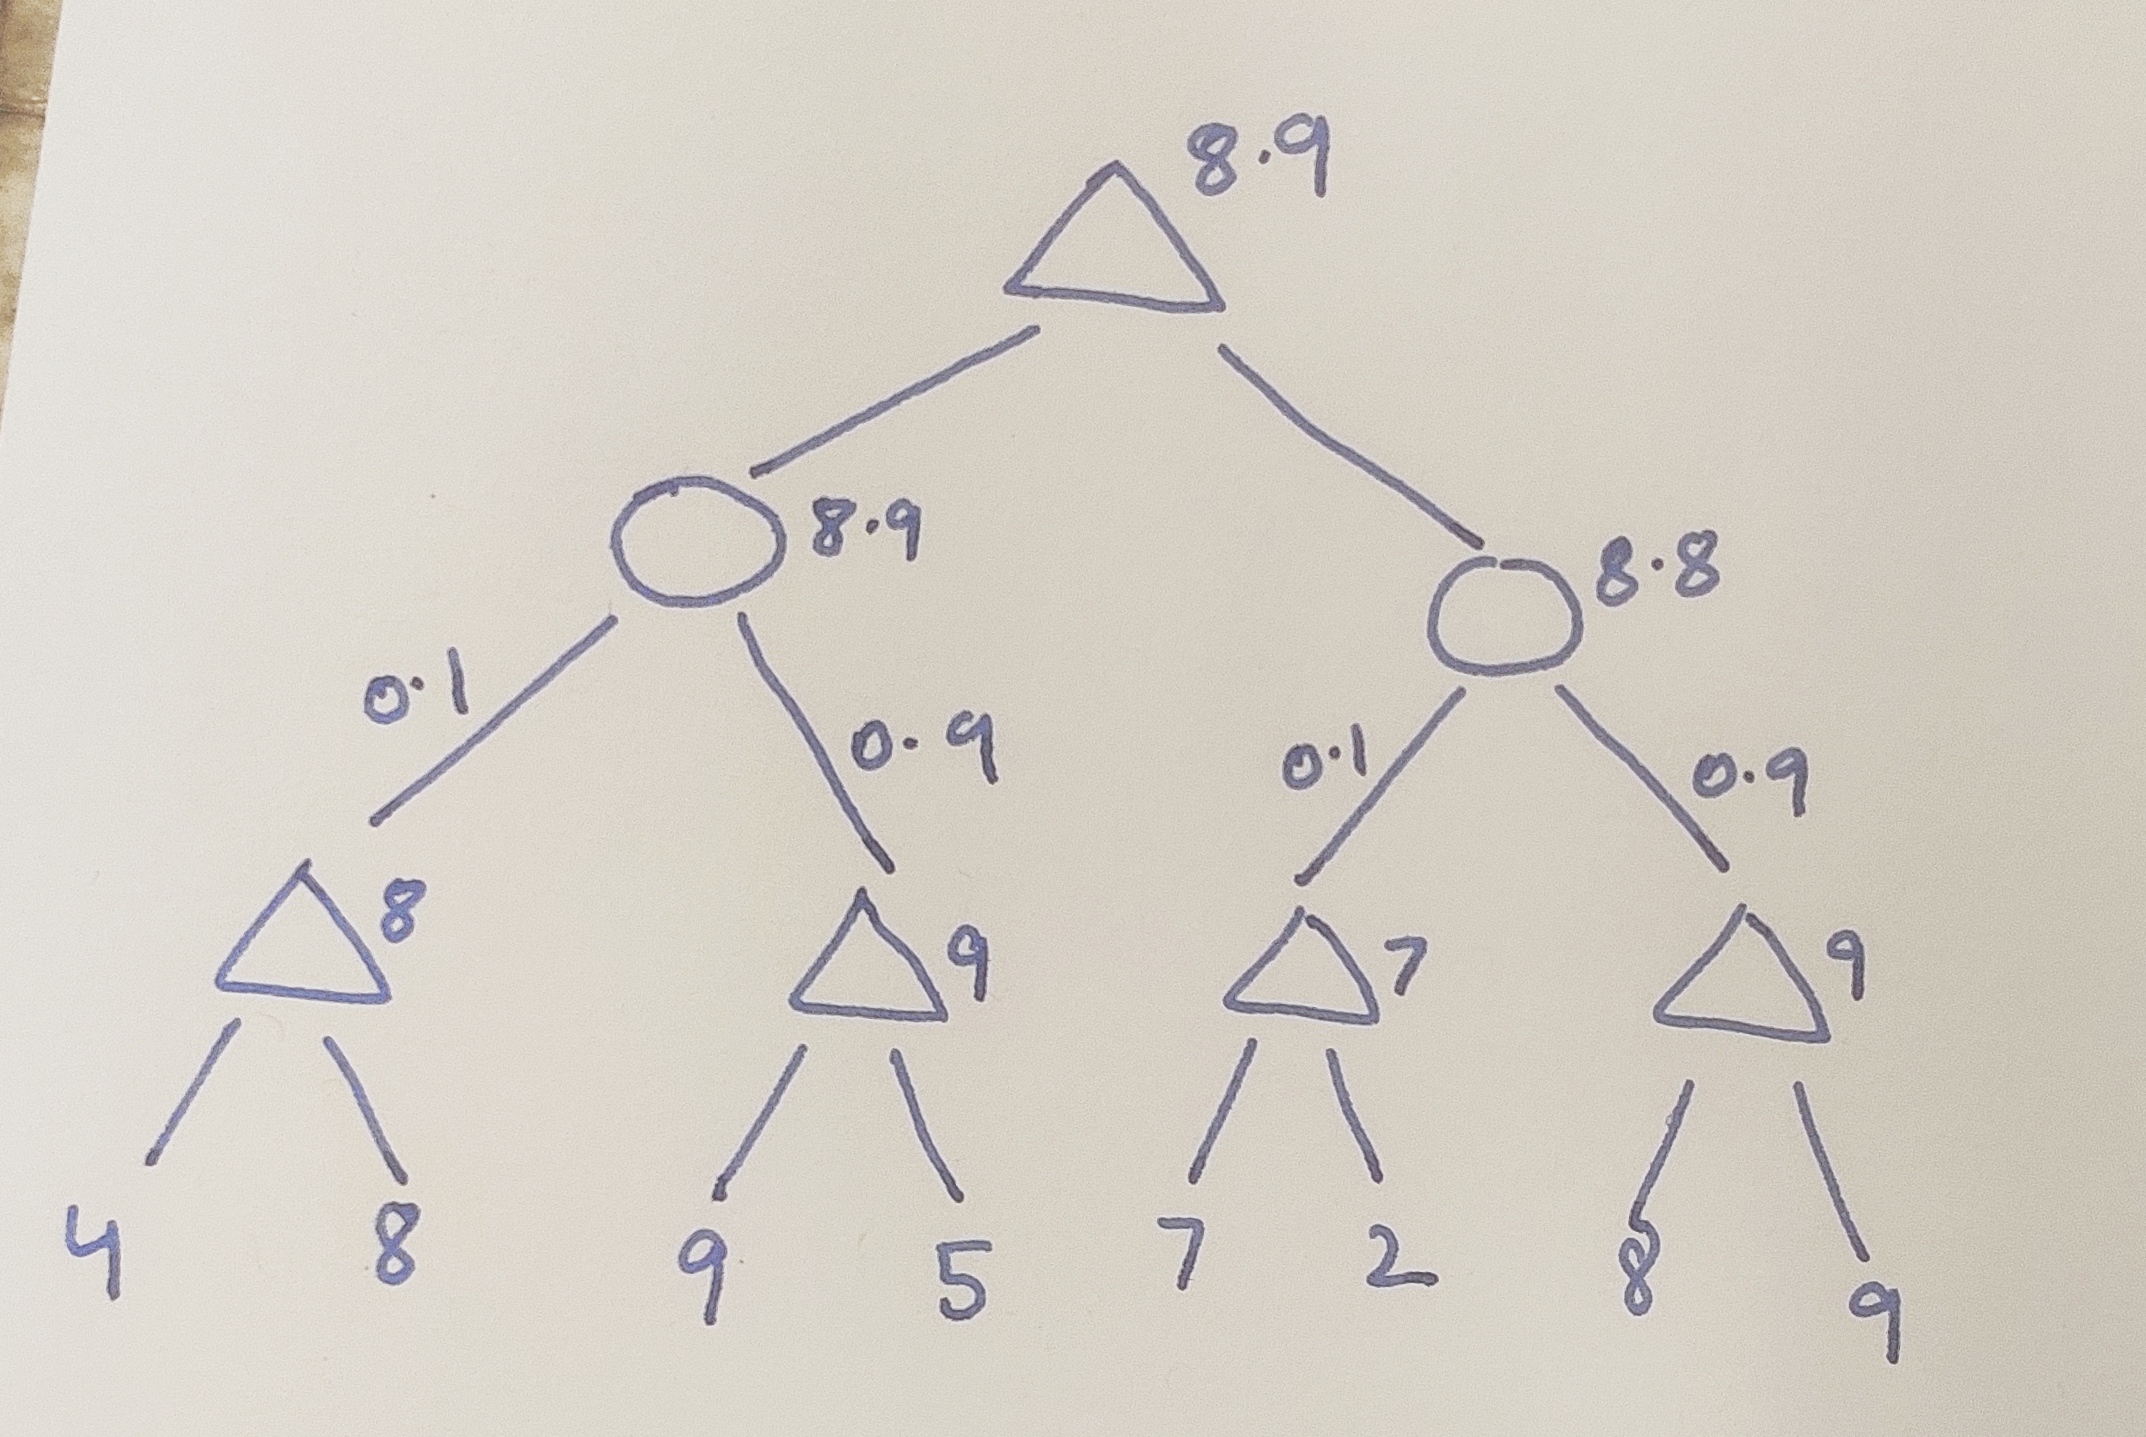 8.9
8.9
8.8
0.1 0.9 0.1 0.9
8 9 7 9
4 8 9 5 7 2 8 9